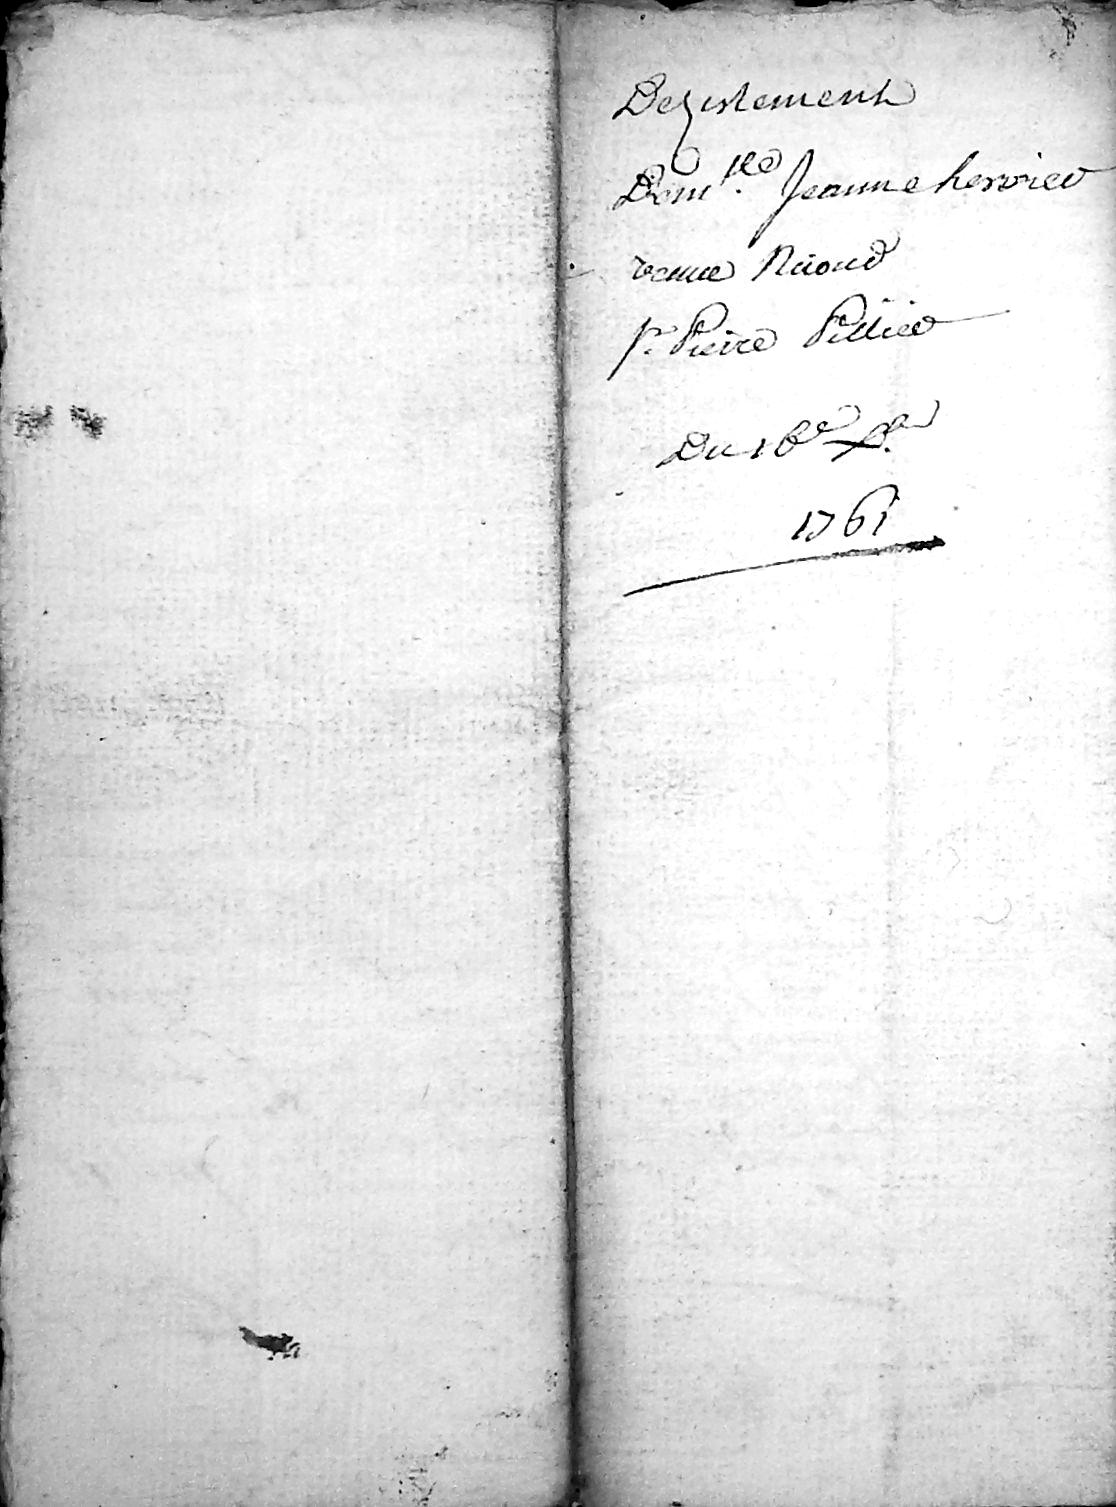 Dezistement
Dom.lle Jeanne hervieu
veuve Riioud
Sr. Pierre Pillieu
Du 16e xbre
1761